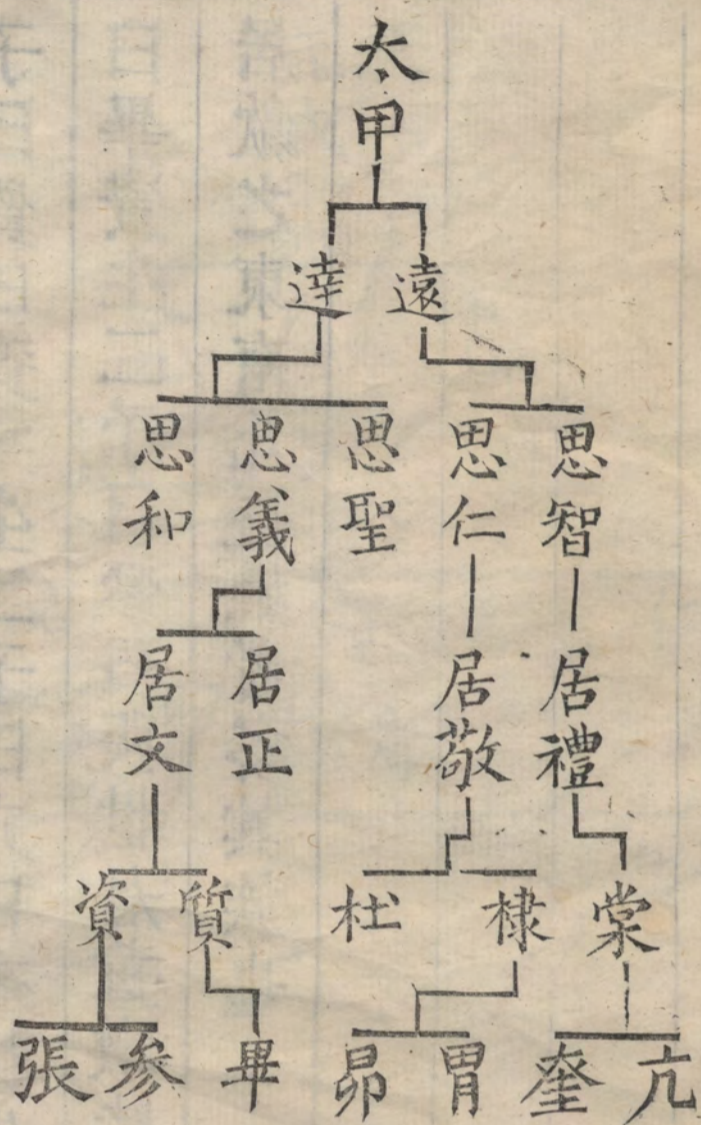 太甲
遠 達
思智 思仁 思聖 思義 思和
居禮 居敬 居正 居文
棠 棣 杜 質 資
亢 奎 胃 昴 畢 參 張